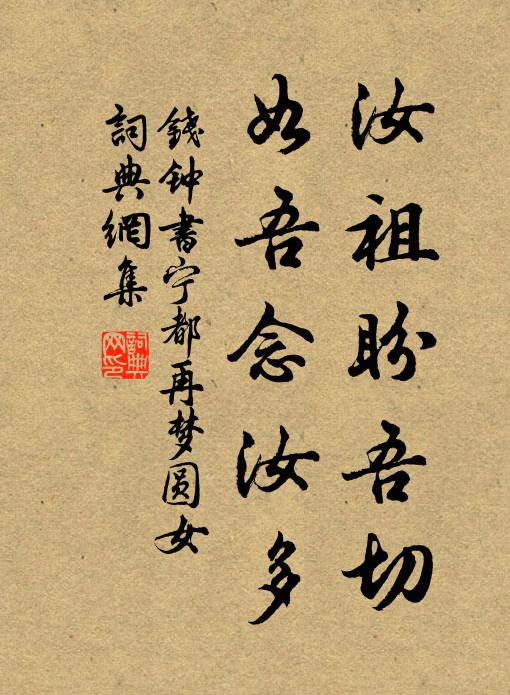 汝祖盼吾切
如吾念汝多
錢钟書宁都再梦圆女
詞典網集
詞典网印